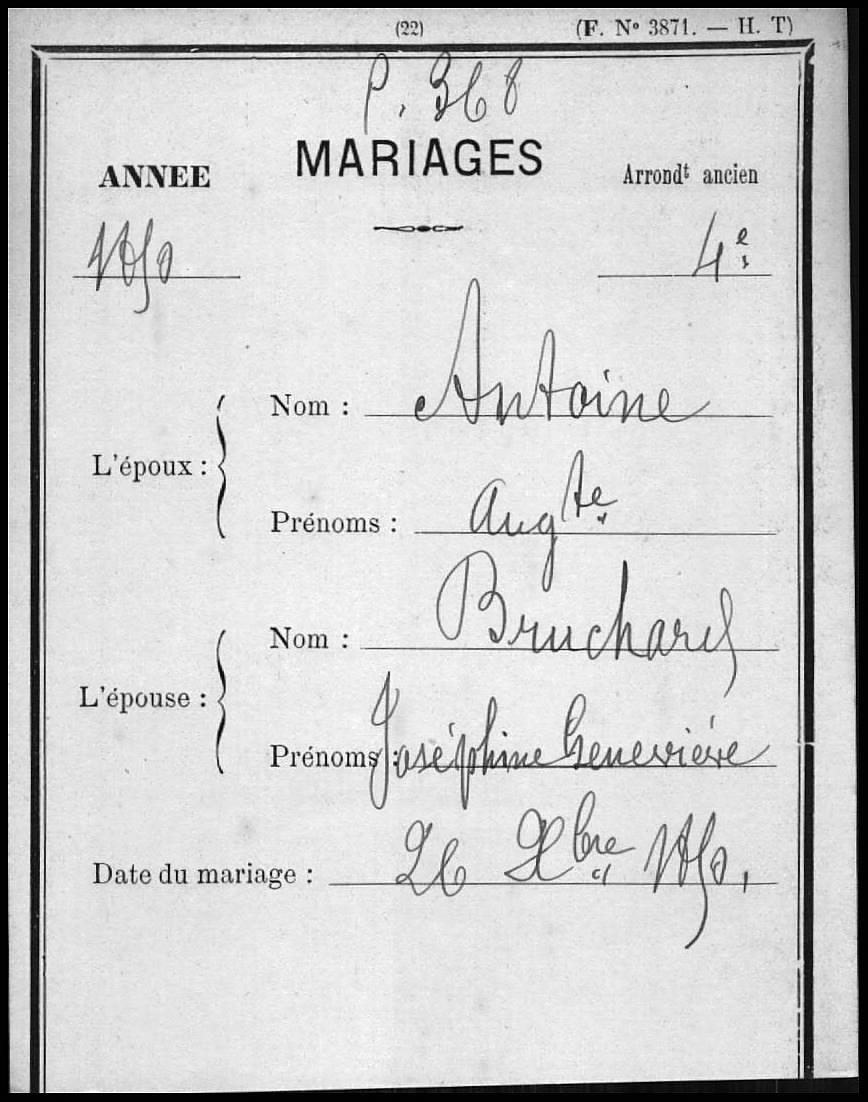 (22) (F. Nº 3871. — H. T)
P. 368
MARIAGES
ANNEE Arrondt ancien
1850 4e
L'époux :
Nom : Antoine
Prénoms : Augte
L'épouse :
Nom : Bruchard
Prénoms : Joséphine Geneviève
Date du mariage : 26 Xbre 1850.